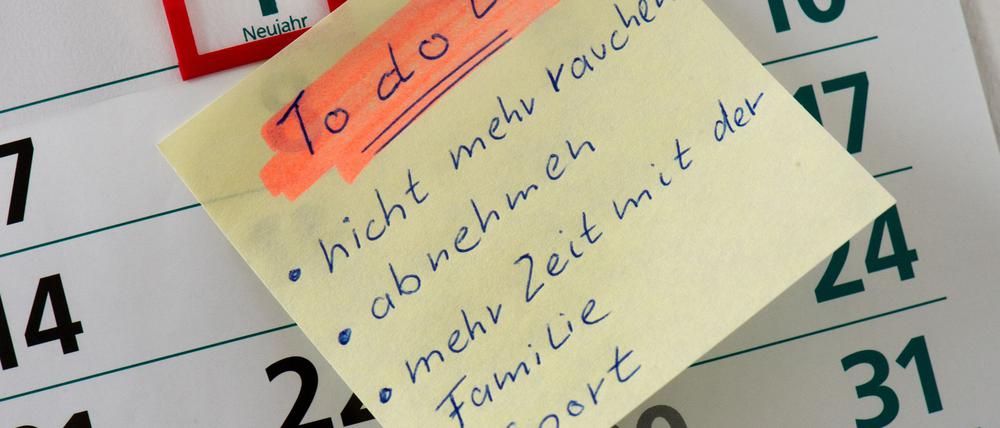 1
Neujahr
To do L
• nicht mehr rauchen
• abnehmen
• mehr Zeit mit der
Familie
Sport
10
7
17
14
24
22
31